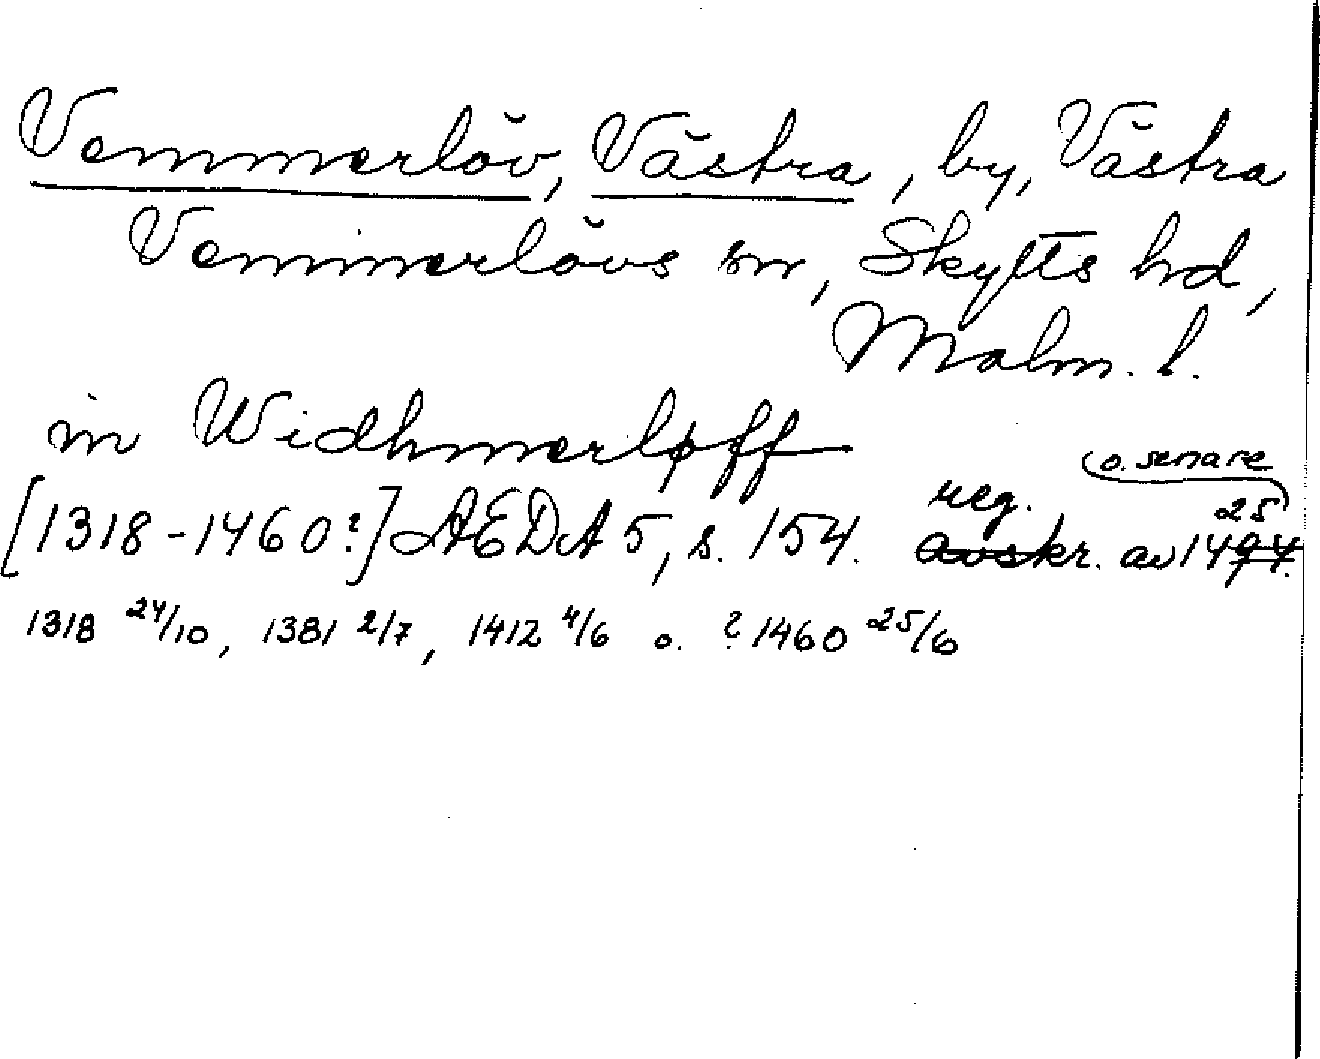 Vemmerlöv, Västra, by, Västra
Vemmerlövs sn, Skytts hd,
Malm. l.
in Widhmerløff
[1318-1460?] AEDA 5, s. 154. reg. avskr. av 1494. 25 o. senare
1318 24/10, 1381 2/7, 1412 4/6 o. ? 1460 25/6